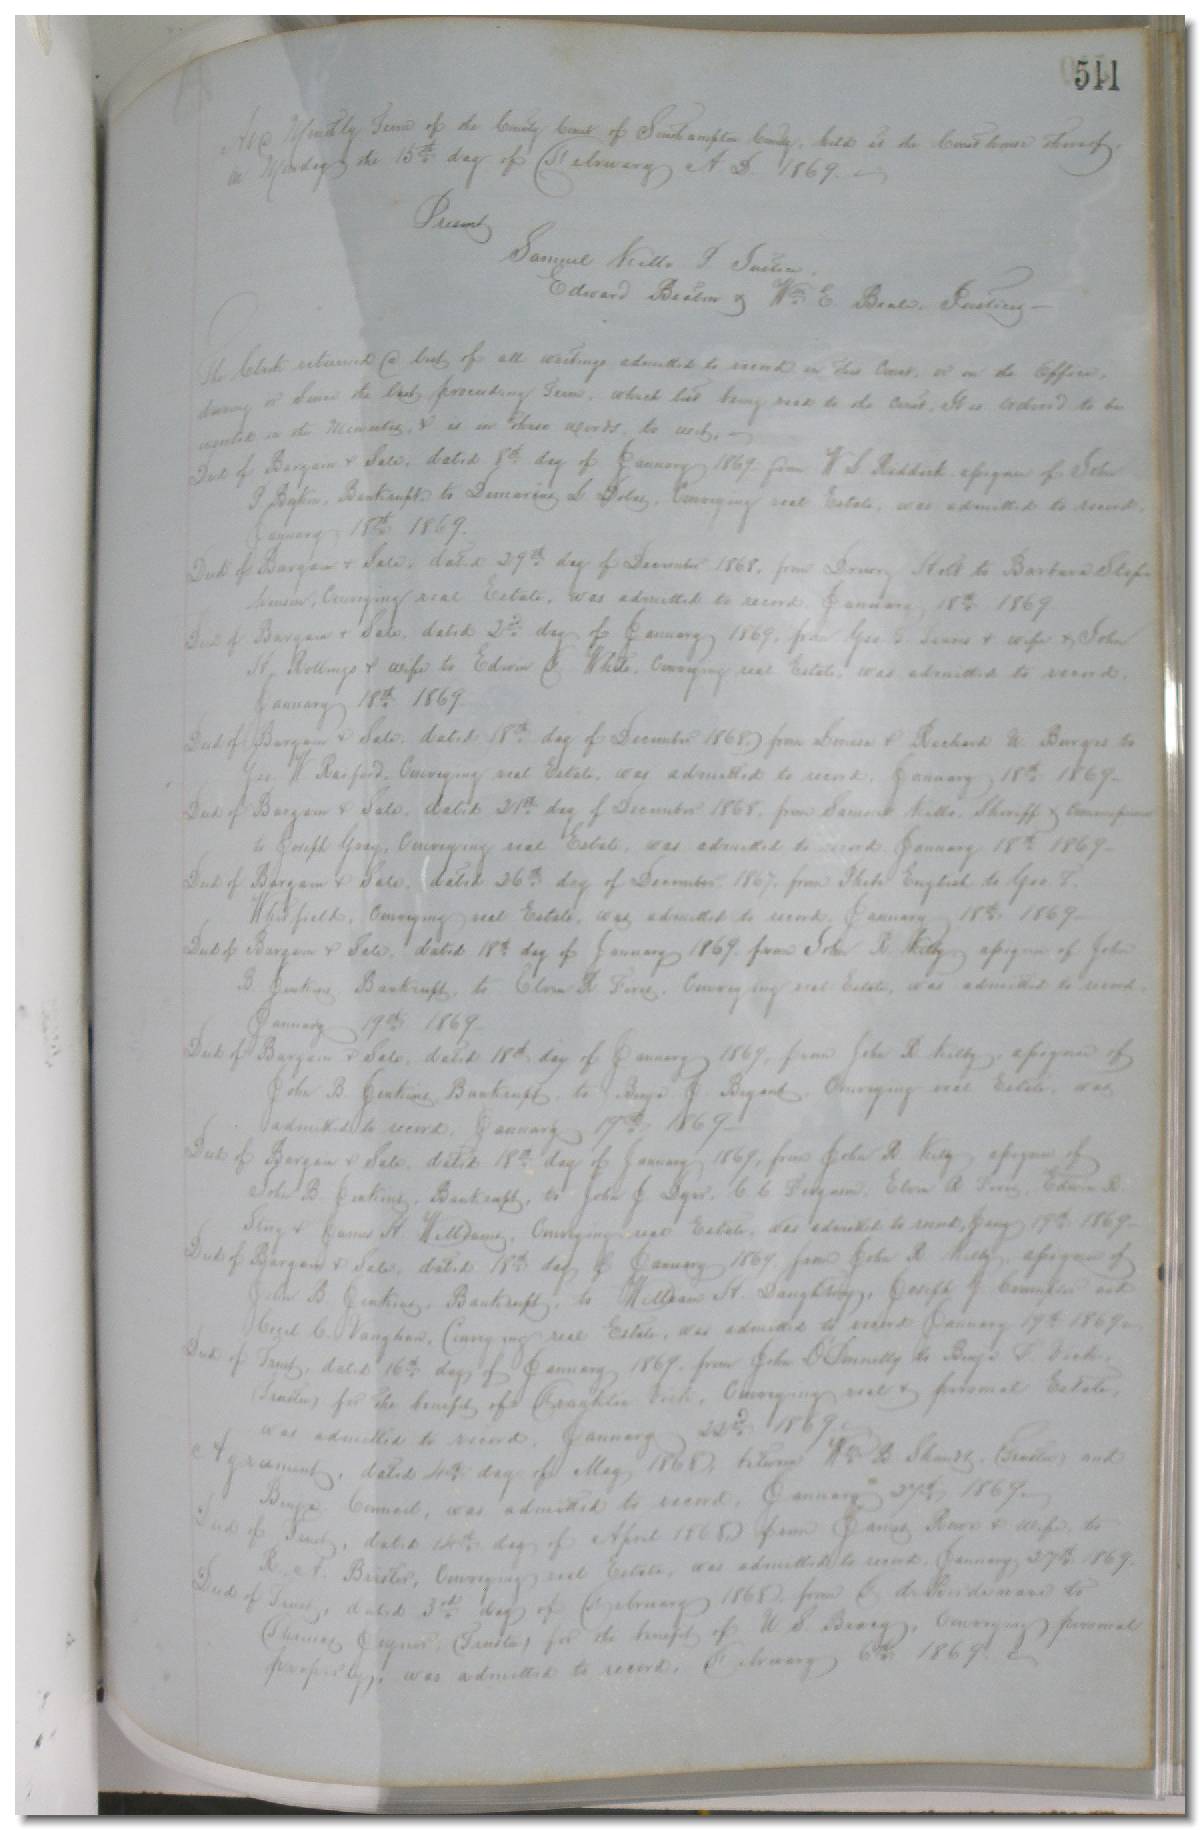 511
At a Monthly Term of the County Court of Southampton County, held at the Courthouse thereof,
on Monday the 15th day of February A D. 1869.
Present
Samuel Kello P. Justice.
Edward Beaton & Wm E. Beale, Justices
The Clerk returned a list of all writings admitted to record in this Court, or in the Office,
during or Since the last preceeding Term, which list being read to the Court, It is Ordered to be
in the Minutes, & is in these words, to wit,
Deed of Bargain & Sale, dated 8th day of January 1869 from W S Riddick assignee of John
P. Bankrupt, to L Conveying real Estate, was admitted to record,
January 18th 1869.
Deed of Bargain & Sale, dated 29th day of December 1868, from Drewry Stith to Barbara Step
henson, Conveying real Estate, was admitted to record, January 18th 1869
Deed of Bargain & Sale, dated 2d day of January 1869, from Geo & wife & John
H. Rollings & wife to Edwin White, Conveying real Estate, was admitted to record,
January 18th 1869
Deed of Bargain & Sale, dated 18th day of December 1868, from Louisa & Richard U. Burges to
Geo. W Raiford, Conveying real Estate, was admitted to record, January 18th 1869
Deed of Bargain & Sale, dated 21st day of December 1868, from Samuel Kello, Sheriff &
to Joseph Gray, Conveying real Estate, was admitted to record January 18th 1869
Deed of Bargain & Sale, dated 26th day of December 1867, from English to Geo T.
Whitfield, Conveying real Estate, was admitted to record, January 18th 1869
Deed of Bargain & Sale, dated 18th day of January 1869 from John R Kilby assignee of John
B. Jenkins Bankrupt, to Elvin R Conveying real Estate, was admitted to record,
January 19th 1869
Deed of Bargain & Sale, dated 18th day of January 1869, from John R Kilby, assignee of
John B. Jenkins, Bankrupt, to Benja J. Conveying real Estate, was
admitted to record, January 19th 1869
Deed of Bargain & Sale, dated 18th day of January 1869, from John R Kilby assignee of
John B. Jenkins, Bankrupt, to John J. C C Ferguson, Elvin R Edwin R.
& James H Williams, Conveying real Estate, was admitted to record, Jany 19th 1869
Deed of Bargain & Sale, dated 18th day of January 1869 from John R Kilby, assignee of
John B. Jenkins, Bankrupt, to William H. Daughtrey, Joseph J. Crumpler and
Cecil C. Vaughan, Conveying real Estate, was admitted to record January 19th 1869
Deed of Trust, dated 16th day of January 1869, from John O'Donnelly to Benja F. Vick,
(Trustee) for the benefit of Franklin Vick, Conveying real & personal Estate,
was admitted to record, January 22nd 1869.
Agreement, dated 4th day of May 1868, between Wm B Shands, (Trustee) and
Benja Council, was admitted to record, January 27th 1869
Deed of Trust, dated 14th day of April 1868 from James Rowe & wife, to
R. A. Brister, Conveying real Estate, was admitted to record, January 27th 1869.
Deed of Trust, dated 3rd day of February 1868 from to
Thomas (Trustee) for the benefit of W. S. Conveying personal
property, was admitted to record, February 6th 1869.